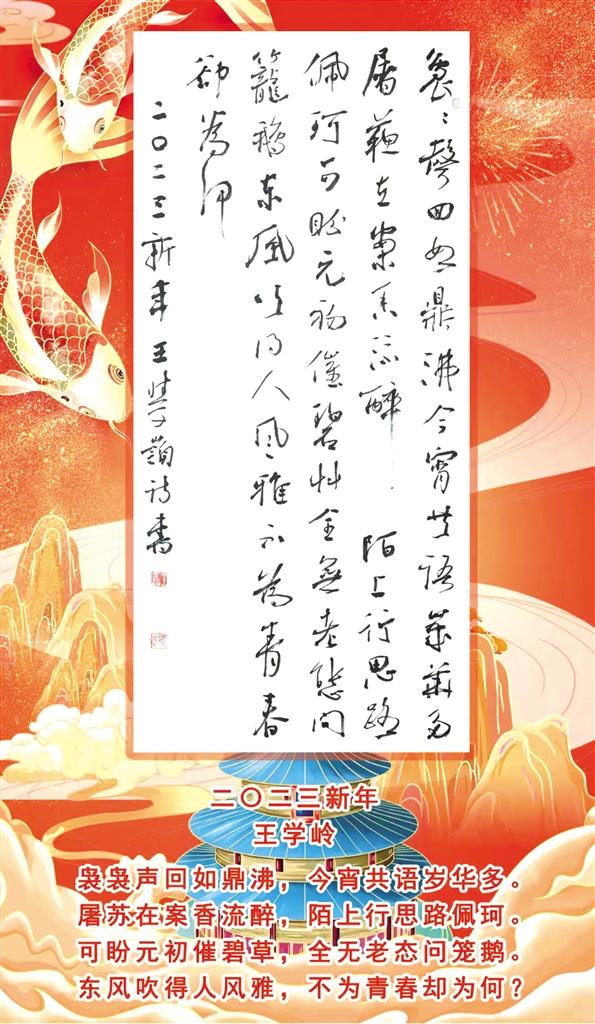 裊〻聲回如鼎沸今宵共語歲華多
屠蘇在案香流醉 陌上行思路
佩珂可盼元初催碧艸全無老態問
籠鵝東風吹得人風雅不為青春
卻為何
二〇二三新年王學嶺詩書
二〇二三新年
王学岭
袅袅声回如鼎沸，今宵共语岁华多。
屠苏在案香流醉，陌上行思路佩珂。
可盼元初催碧草，全无老态问笼鹅。
东风吹得人风雅，不为青春却为何？